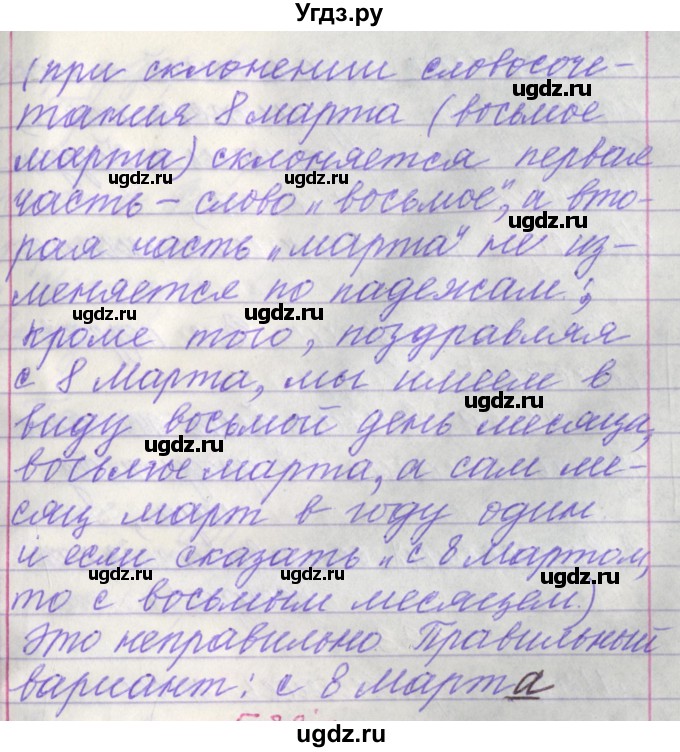 Угдз.ру
(при склонении словосоче-
тания 8 марта (восьмое
марта) склоняется первая
часть – слово „восьмое", а вто-
рая часть „марта" не из-
меняется по падежам;
кроме того, поздравляя
с 8 Марта, мы имеем в
виду восьмой день месяца,
восьмое марта, а сам ме-
сяц март в году один
и если сказать „с 8 Мартом,
то с восьмым месяцем.)
Это неправильно Правильный
вариант: с 8 Марта
ugdz.ru
ugdz.ru
ugdz.ru
ugdz.ru
ugdz.ru
ugdz.ru
ugdz.ru
ugdz.ru
ugdz.ru
ugdz.ru
ugdz.ru
ugdz.ru
ugdz.ru
ugdz.ru